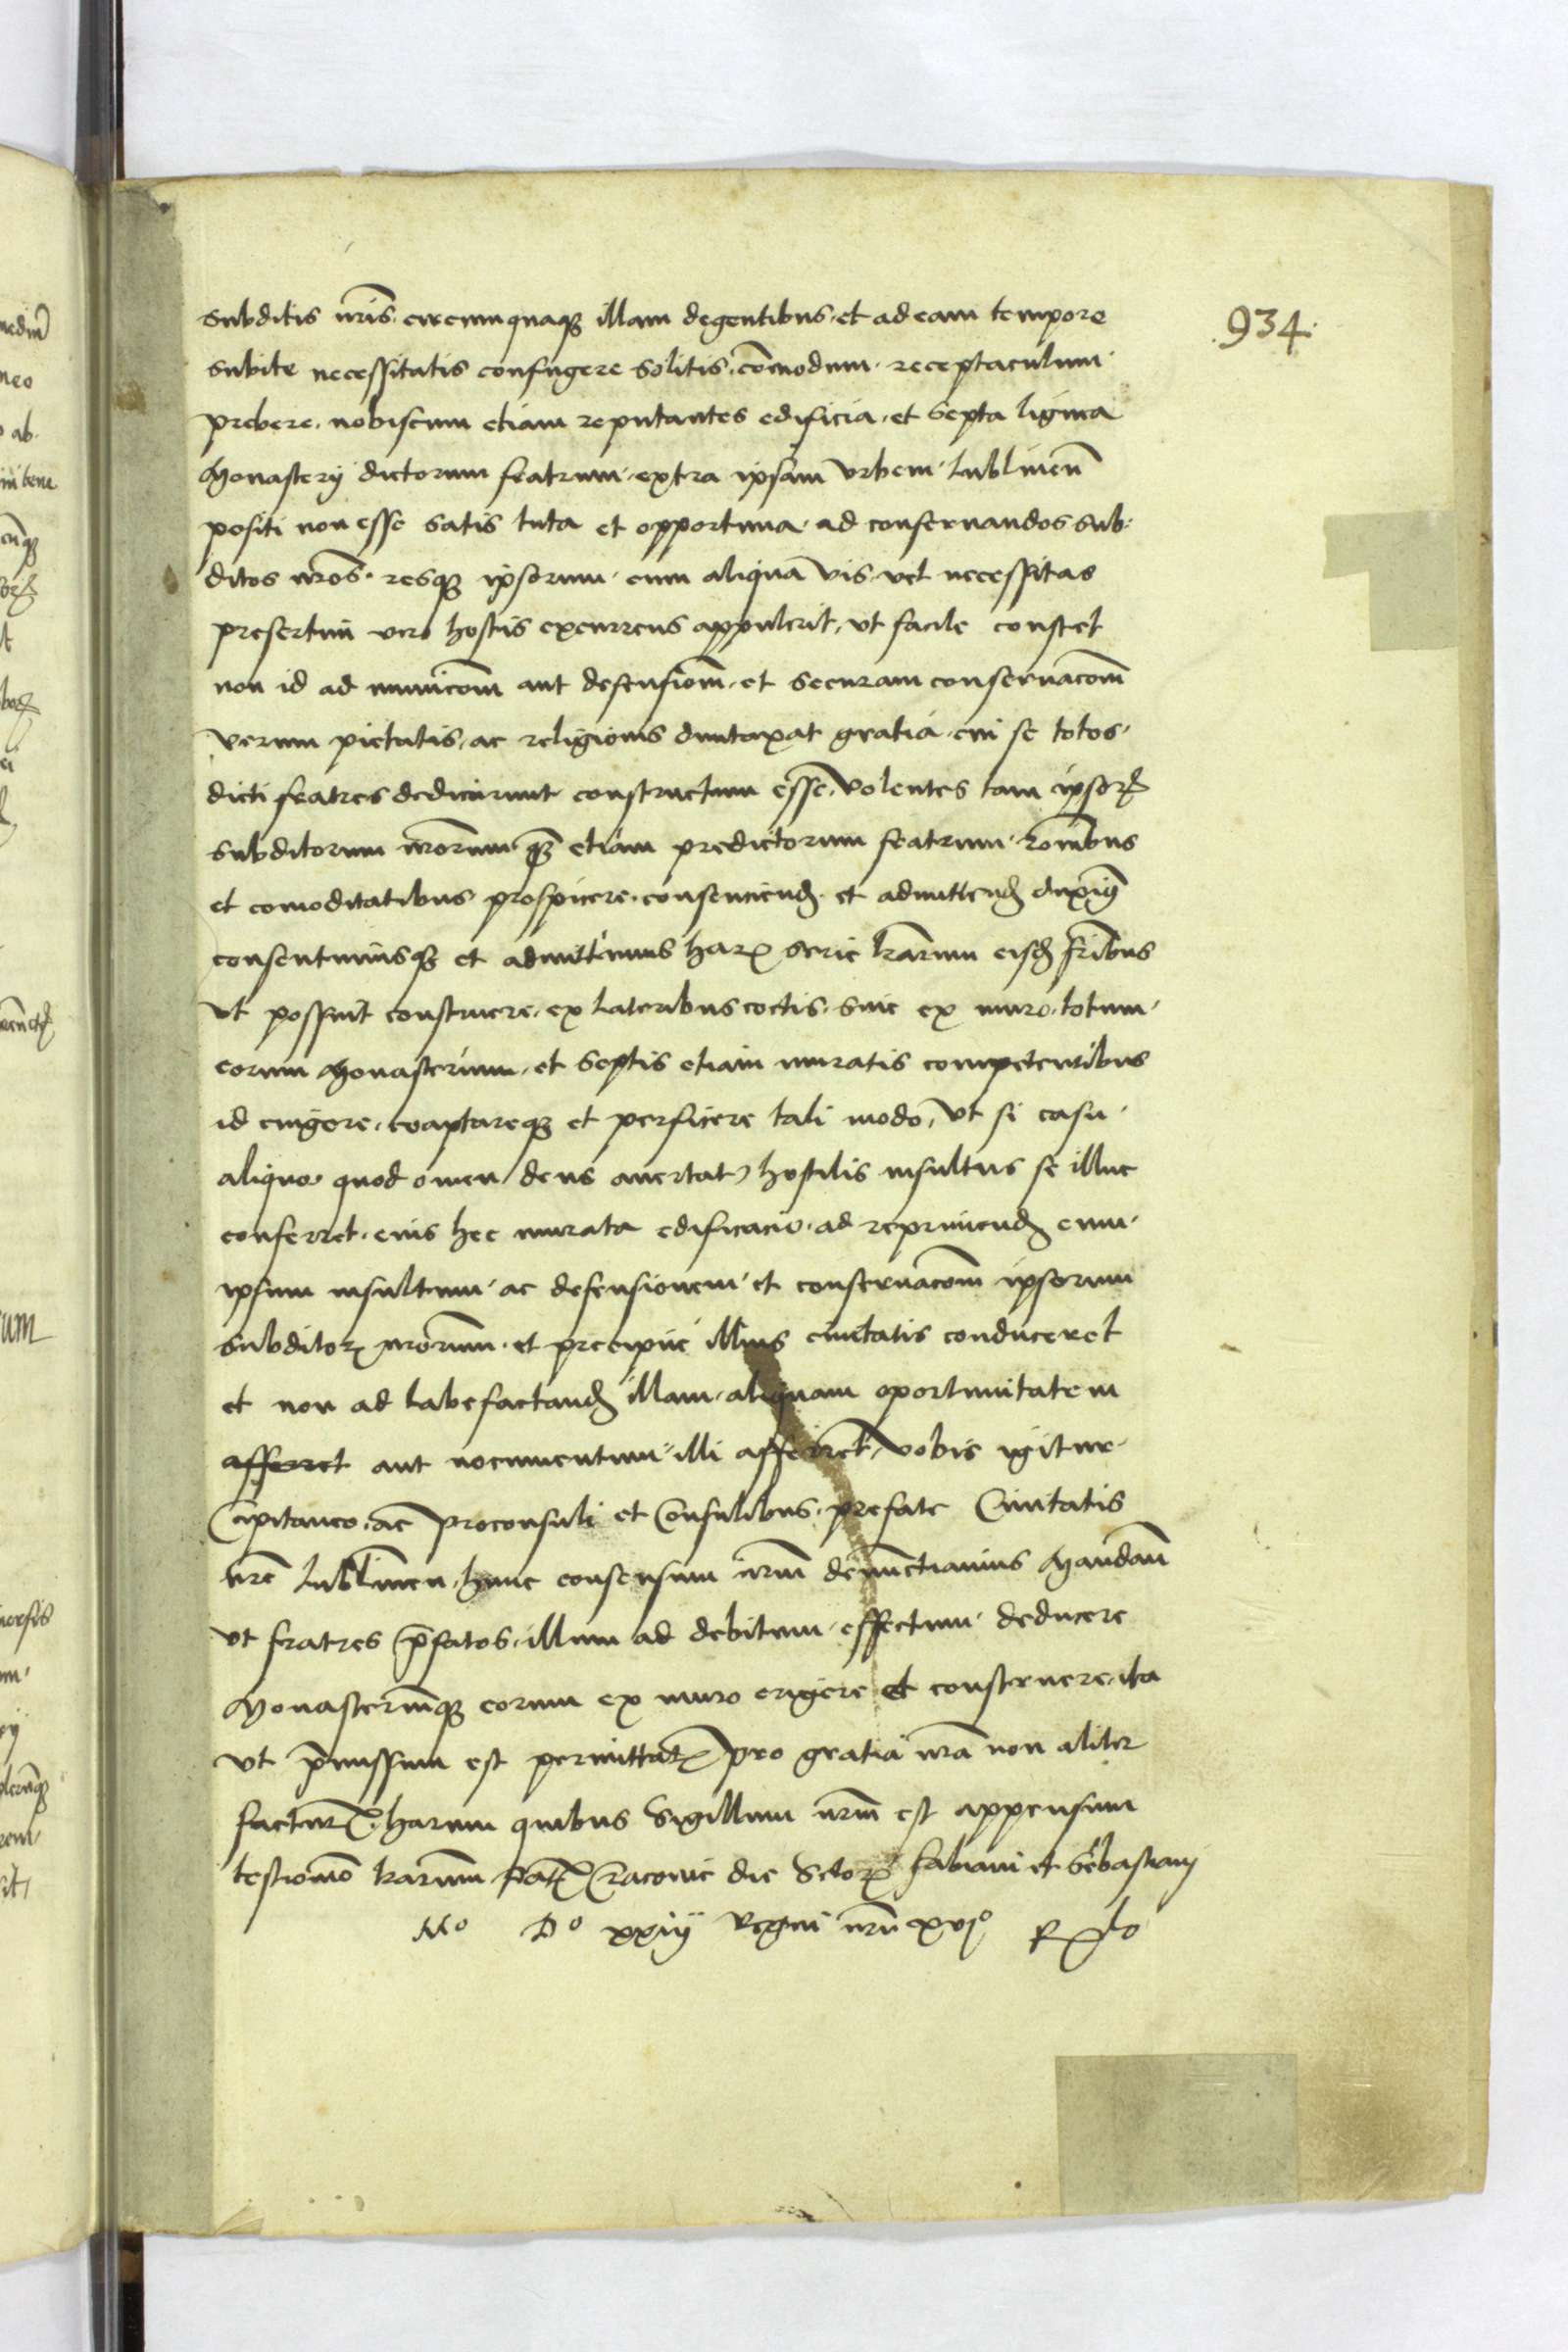 934.
subditis nr̃is circumquaqꝫ illam degentibus et ad eam tempore
subite necessitatis confugere solitis com̃odum receptaculum
prebere. nobiscum etiam reputantes edificia et septa lignea
Monasterij dictorum fratrum extra ipsam vrbem Lublinen̄
positi non esse satis tuta et opportuna ad conseruandos sub⸗
ditos nr̃os. resqꝫ ipsorum cum aliqua vis vel necessitas
presertim vero hostis excurrens appulerit, vt facile constet
non id ad municōm aut defensiōm et securam conseruacōm
verum pietatis ac religionis duntaxat gratia cui se totos
dicti fratres dedicarunt constructum esse. Volentes tam ipsorꝝ
subditorum nr̃orum qꝫ etiam predictorum fratrum rōnibus
et comoditatibus prospicere. consenciendꝫ et admittendꝫ duximꝰ
consentimusqꝫ et admittimus harꝝ serie lr̃arum eisdꝫ fr̃ibus
vt possint construere ex lateribus coctis siue ex muro totum
eorum Monasterium et septis etiam muratis competentibus
id cingere, coaptareqꝫ et perficere tali modo, vt si casu
aliquo quod omen deus auertat) hostilis insultus se illuc
conferret. eius hec murata edificacio ad reprimendꝫ eum
ipsum insultum ac defensionem et conseruacōm ipsorum
subditorꝝ nr̃orum. et precipue illius ciuitatis conduceret
et non ad labefactandꝫ illam aliquam oportunitatem
afferret aut nocumentum illi afferret, vobis igitur
Capitaneo. ac proconsuli et Consulibus prefate Ciuitatis
nr̃e Lublinen̄. hunc consensum nr̃um denunctiamus Mandan̄
vt fratres p̄fatos illum ad debitum effectum deducere
Monasteriumqꝫ eorum ex muro erigere et construere ita
vt p̄missum est permittatꝫ pro gratia nr̃a non aliter
facturꝫ. harum quibus Sigillum nr̃um est appensum
testimo͂o lr̃arum Datꝫ Cracouie die Sctorꝝ Fabiani et Sebastiani
Mº Dº xxiij Regni nr̃i xvjº